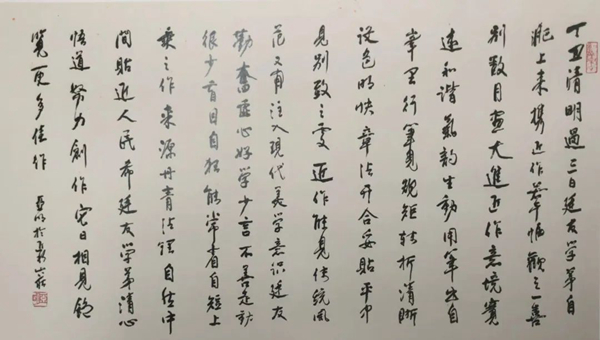 丁丑清明過三日廷友学弟自
上来攜近作幅觀之一
別数月画大進近作意境寬
遠和谐氣韵生動用筆出自
峯里行筆見規矩轉折清晰
设色明快章法开合妥贴平中
見別致之变近作能見传統風
范又有注入現代美学意识廷友
勤奮虚心好学少言不善走訪
很少盲目自狂能常看自短上
乘之作来源丹青法理自然中
間贴近人民希廷友学弟清心
悟道努力創作它日相見
覽更多佳作 亚明於山莊